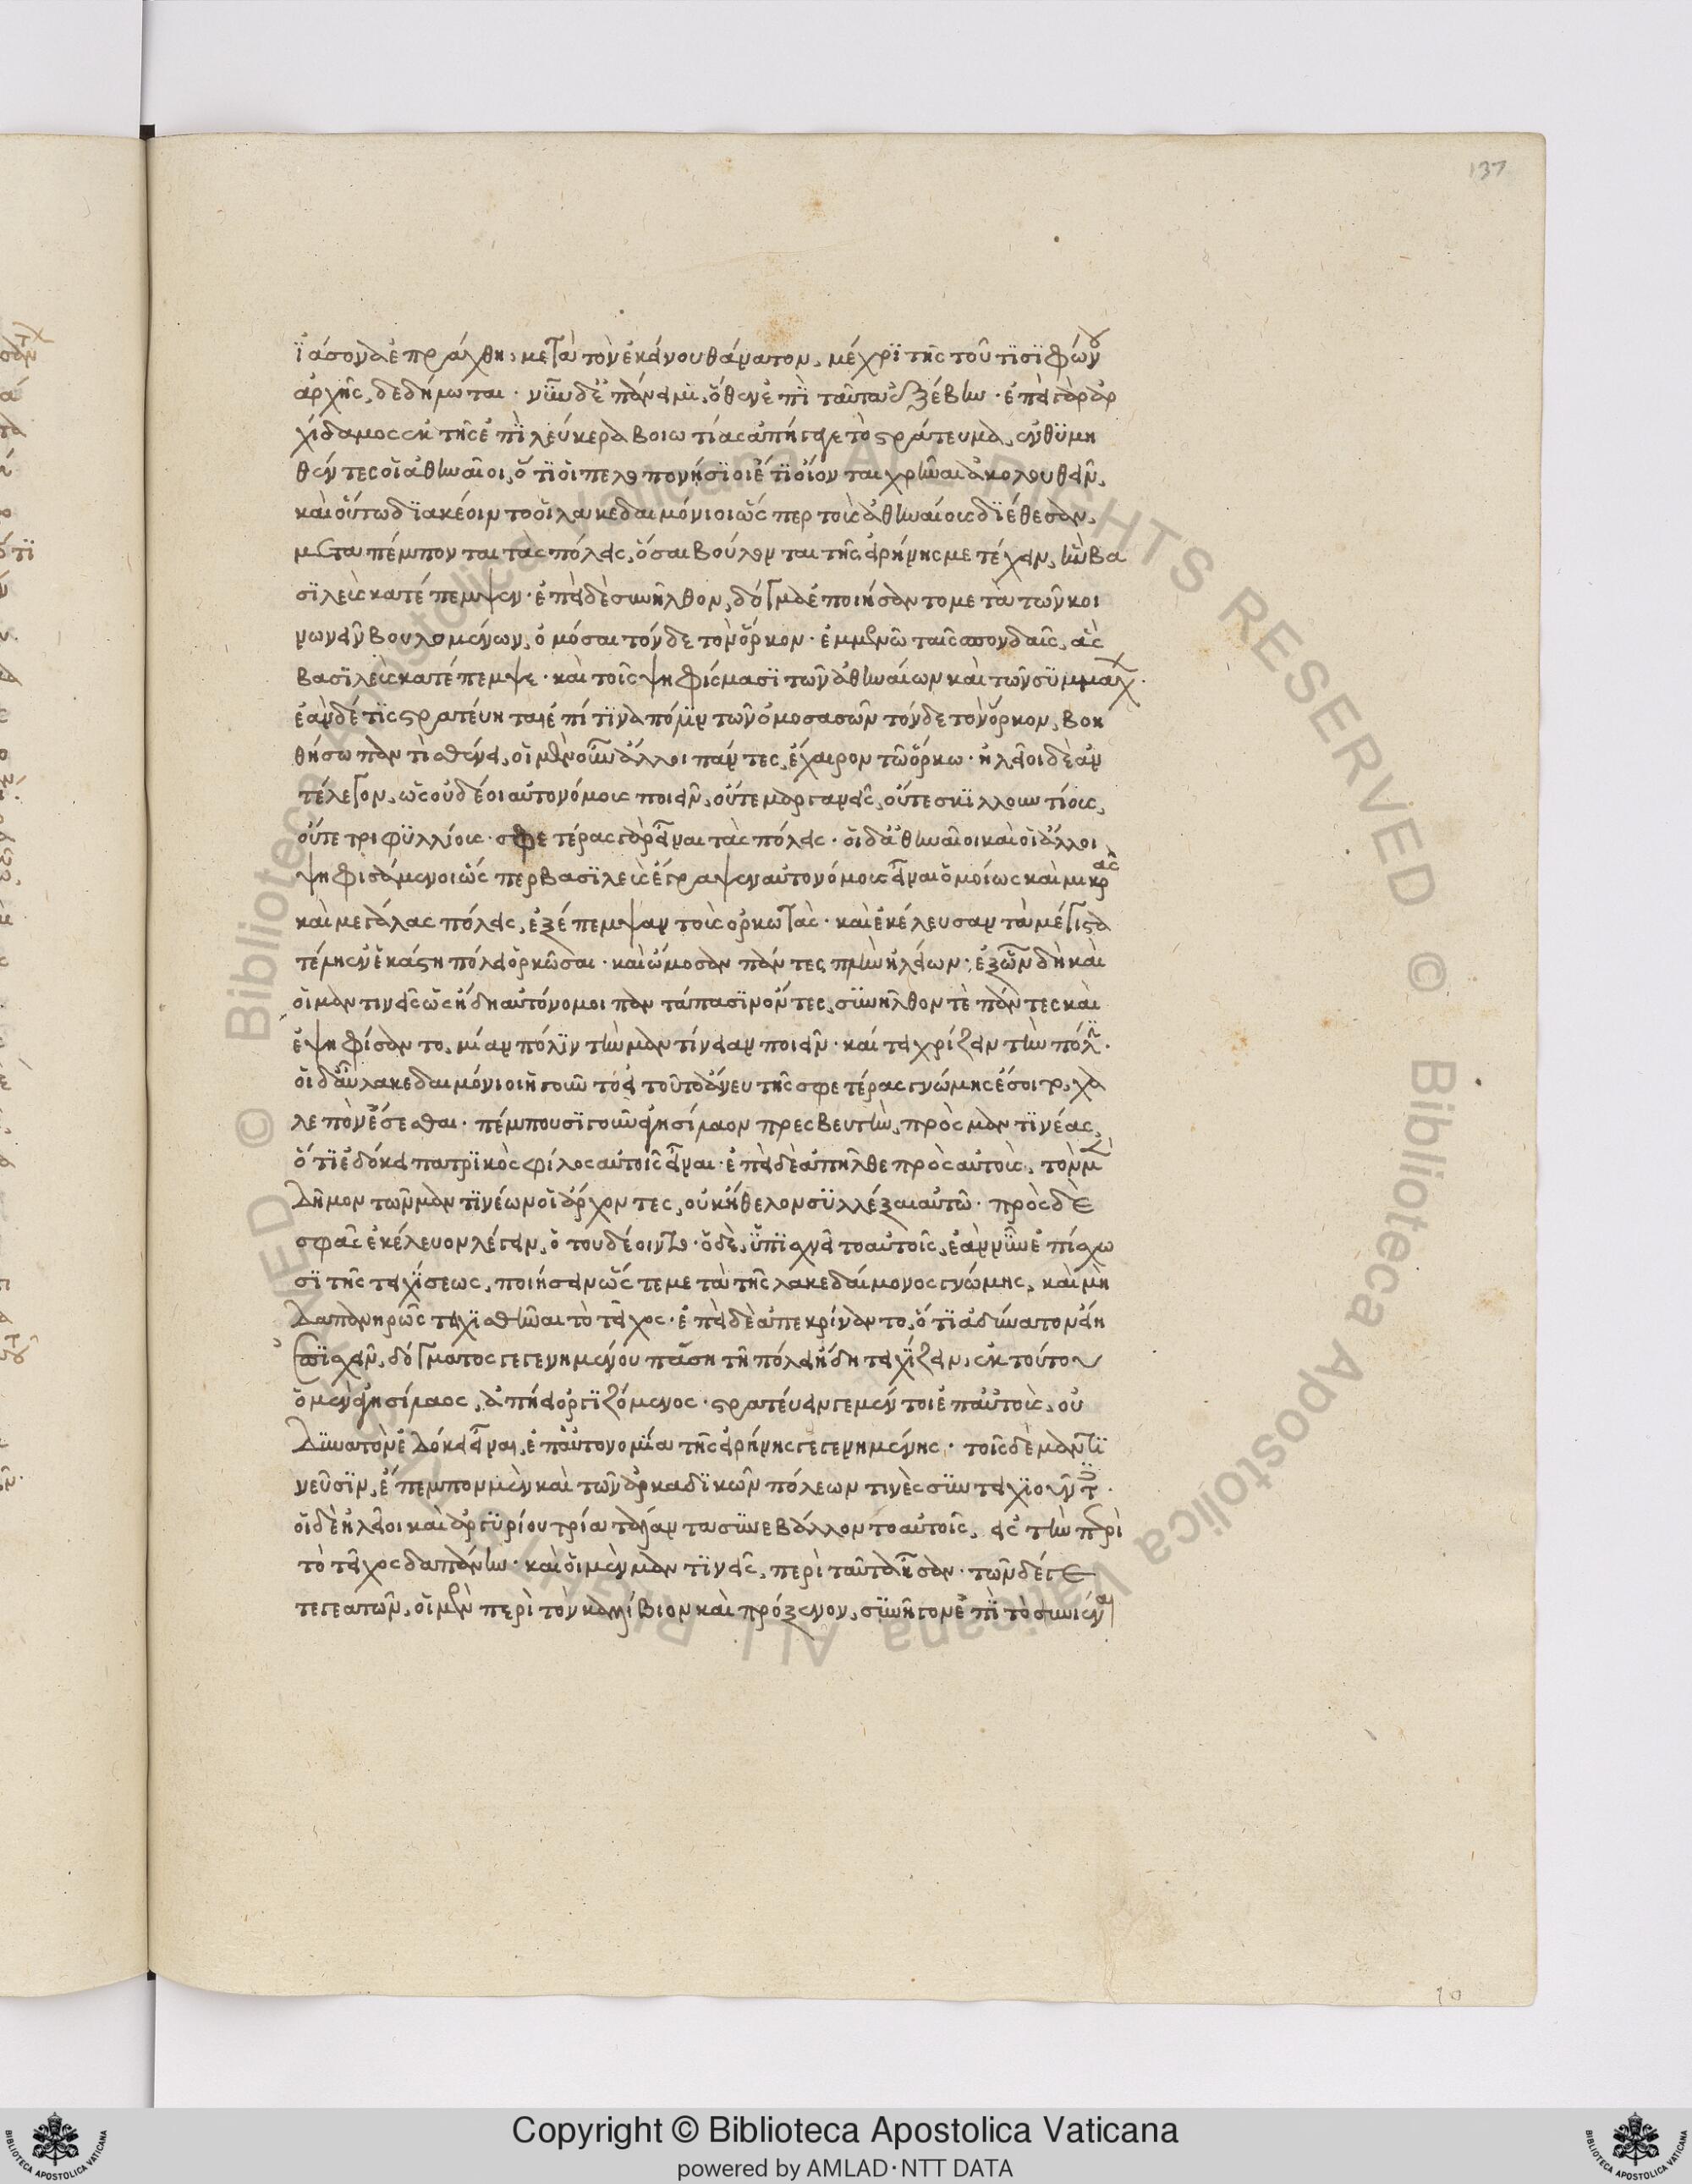 ἰάσονα ἐπράχθη, μετὰ τὸν ἐκείνου θάνατον, μέχρι τῆς τοῦ τισιφώνου
ἀρχῆς, δεδήλωται· νῦν δ' ἐπάνειμι, ὅθεν ἐπὶ ταῦτα ἐξέβην· ἐπεὶ γὰρ ἀρ
χίδαμος ἐκ τῆς ἐπὶ λεύκτρα βοιωτίας ἀπήγαγε τὸ στράτευμα, ἐνθυμη
θέντες οἱ ἀθηναῖοι, ὅτι οἱ πελοπονήσιοι ἔτι οἴονται χρῆναι ἀκολουθεῖν,
καὶ οὔπω διακέοιντο οἱ λακεδαιμόνιοι ὥσπερ τοὺς ἀθηναίους διέθεσαν,
μεταπέμπονται τὰς πόλεις, ὅσαι βούλονται τῆς εἰρήνης μετέχειν, ἣν βα
σιλεὺς κατέπεμψεν· ἐπεὶ δὲ συνῆλθον, δόγμα ἐποιήσαντο μετὰ τῶν κοι
νωνεῖν βουλομένων, ὀμόσαι τόνδε τὸν ὅρκον· ἐμμενῶ ταῖς σπονδαῖς, ἃς
βασιλεὺς κατέπεμψε· καὶ τοῖς ψηφίσμασι τῶν ἀθηναίων καὶ τῶν συμμάχ.
ἐὰν δέ τις στρατεύηται ἐπί τινα πόλιν τῶν ὀμοσασῶν τόνδε τὸν ὅρκον, βοη
θήσω παντὶ σθένει, οἱ μὲν οὖν ἄλλοι πάντες, ἔχαιρον τῷ ὅρκω· ἠλεῖοι δὲ ἀν
τέλεγον, ὡς οὐ δέοι αὐτονόμους ποιεῖν, οὔτε μαργανεῖς, οὔτε σκιλλουντίους,
οὔτε τριφυλλίους· σφετέρας γὰρ εἶναι τὰς πόλεις· οἱ δ' ἀθηναῖοι καὶ οἱ ἄλλοι
ψηφισάμενοι ὥσπερ βασιλεὺς ἔγραψεν αὐτονόμους εἶναι ὁμοίως καὶ μικρὰς
καὶ μεγάλας πόλεις, ἐξέπεμψαν τοὺς ὁρκωτάς· καὶ ἐκέλευσαν τὰ μέγιστα
τέλη ἐν ἑκάστη πόλει ὁρκῶσαι· καὶ ὤμοσαν πάντες πλὴν ἠλείων· ἐξ ὧν δὴ καὶ
οἱ μαντινεῖς ὡς ἤδη αὐτόνομοι παντάπασιν ὄντες, συνῆλθόν τε πάντες καὶ
ἐψηφίσαντο, μίαν πόλιν τὴν μαντίνειαν ποιεῖν· καὶ τειχίζειν τὴν πόλιν.
οἱ δ' αὖ λακεδαιμόνιοι ἡγοῦντο εἰ τοῦτο ἄνευ τῆς σφετέρας γνώμης ἔσοιτο, χα
λεπὸν ἔσεσθαι· πέμπουσι γοῦν ἀγησίλαον πρεσβευτὴν, πρὸς μαντινέας,
ὅτι ἐδόκει πατρικὸς φίλος αὐτοῖς εἶναι· ἐπεὶ δὲ ἀπῆλθε πρὸς αὐτοὺς, τὸν μὲν
δῆμον τῶν μαντινέων οἱ ἄρχοντες, οὐκ ἤθελον συλλέξαι αὐτῶ· πρὸς δὲ
σφᾶς ἐκέλευον λέγειν, ὅτου δέοιντο· ὁ δὲ, ὑπισχνεῖτο αὐτοῖς, ἐὰν νῦν ἐπίσχω
σι τῆς τειχίσεως, ποιήσειν ὥστε μετὰ τῆς λακεδαίμονος γνώμης, καὶ μὴ
δαπανηρῶς τειχισθῆναι τὸ τεῖχος· ἐπεὶ δὲ ἀπεκρίναντο, ὅτι ἀδύνατον εἴη
ἐπισχεῖν, δόγματος γεγενημένου πάση τῆ πόλει ἤδη τειχίζειν, ἐκ τούτου
ὁ μὲν ἀγησίλαος, ἀπήει ὀργιζόμενος· στρατεύειν γε μέντοι ἐπ' αὐτοὺς, οὐ
δυνατὸν ἐδόκει εἶναι, ἐπ' αὐτονομία τῆς εἰρήνης γεγενημένης· τοῖς δὲ μαντι
νεῦσιν, ἔπεμπον μὲν καὶ τῶν ἀρκαδικῶν πόλεων τινὲς συντειχιοῦντ.
οἱ δὲ ἠλεῖοι καὶ ἀργυρίου τρία τάλαντα συνεβάλλοντο αὐτοῖς, εἰς τὴν περὶ
τὸ τεῖχος δαπάνην· καὶ οἱ μὲν μαντινεῖς, περὶ ταῦτα ἦσαν· τῶν δέ γε
τεγεατῶν, οἱ μὲν περὶ τὸν καλλίβιον καὶ πρόξενον, συνῆγον ἐπὶ τὸ συνιέναι
137
Copyright © Biblioteca Apostolica Vaticana
powered by AMLAD·NTT DATA